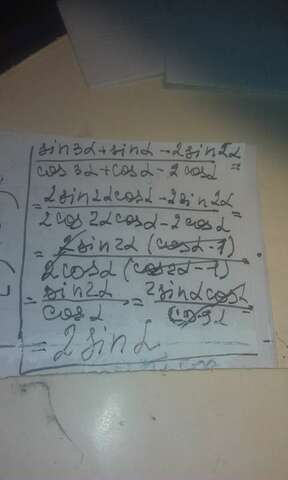 sin3α+sinα-2sin2α
cos3α+cosα-2cosα =
= 2sin2αcosα-2sin2α
2cos2αcosα-2cosα =
= 2sin2α(cosα-1)
2cosα(cos2α-1) .
= sin2α = 2sinαcosα
cosα =
= 2sinα